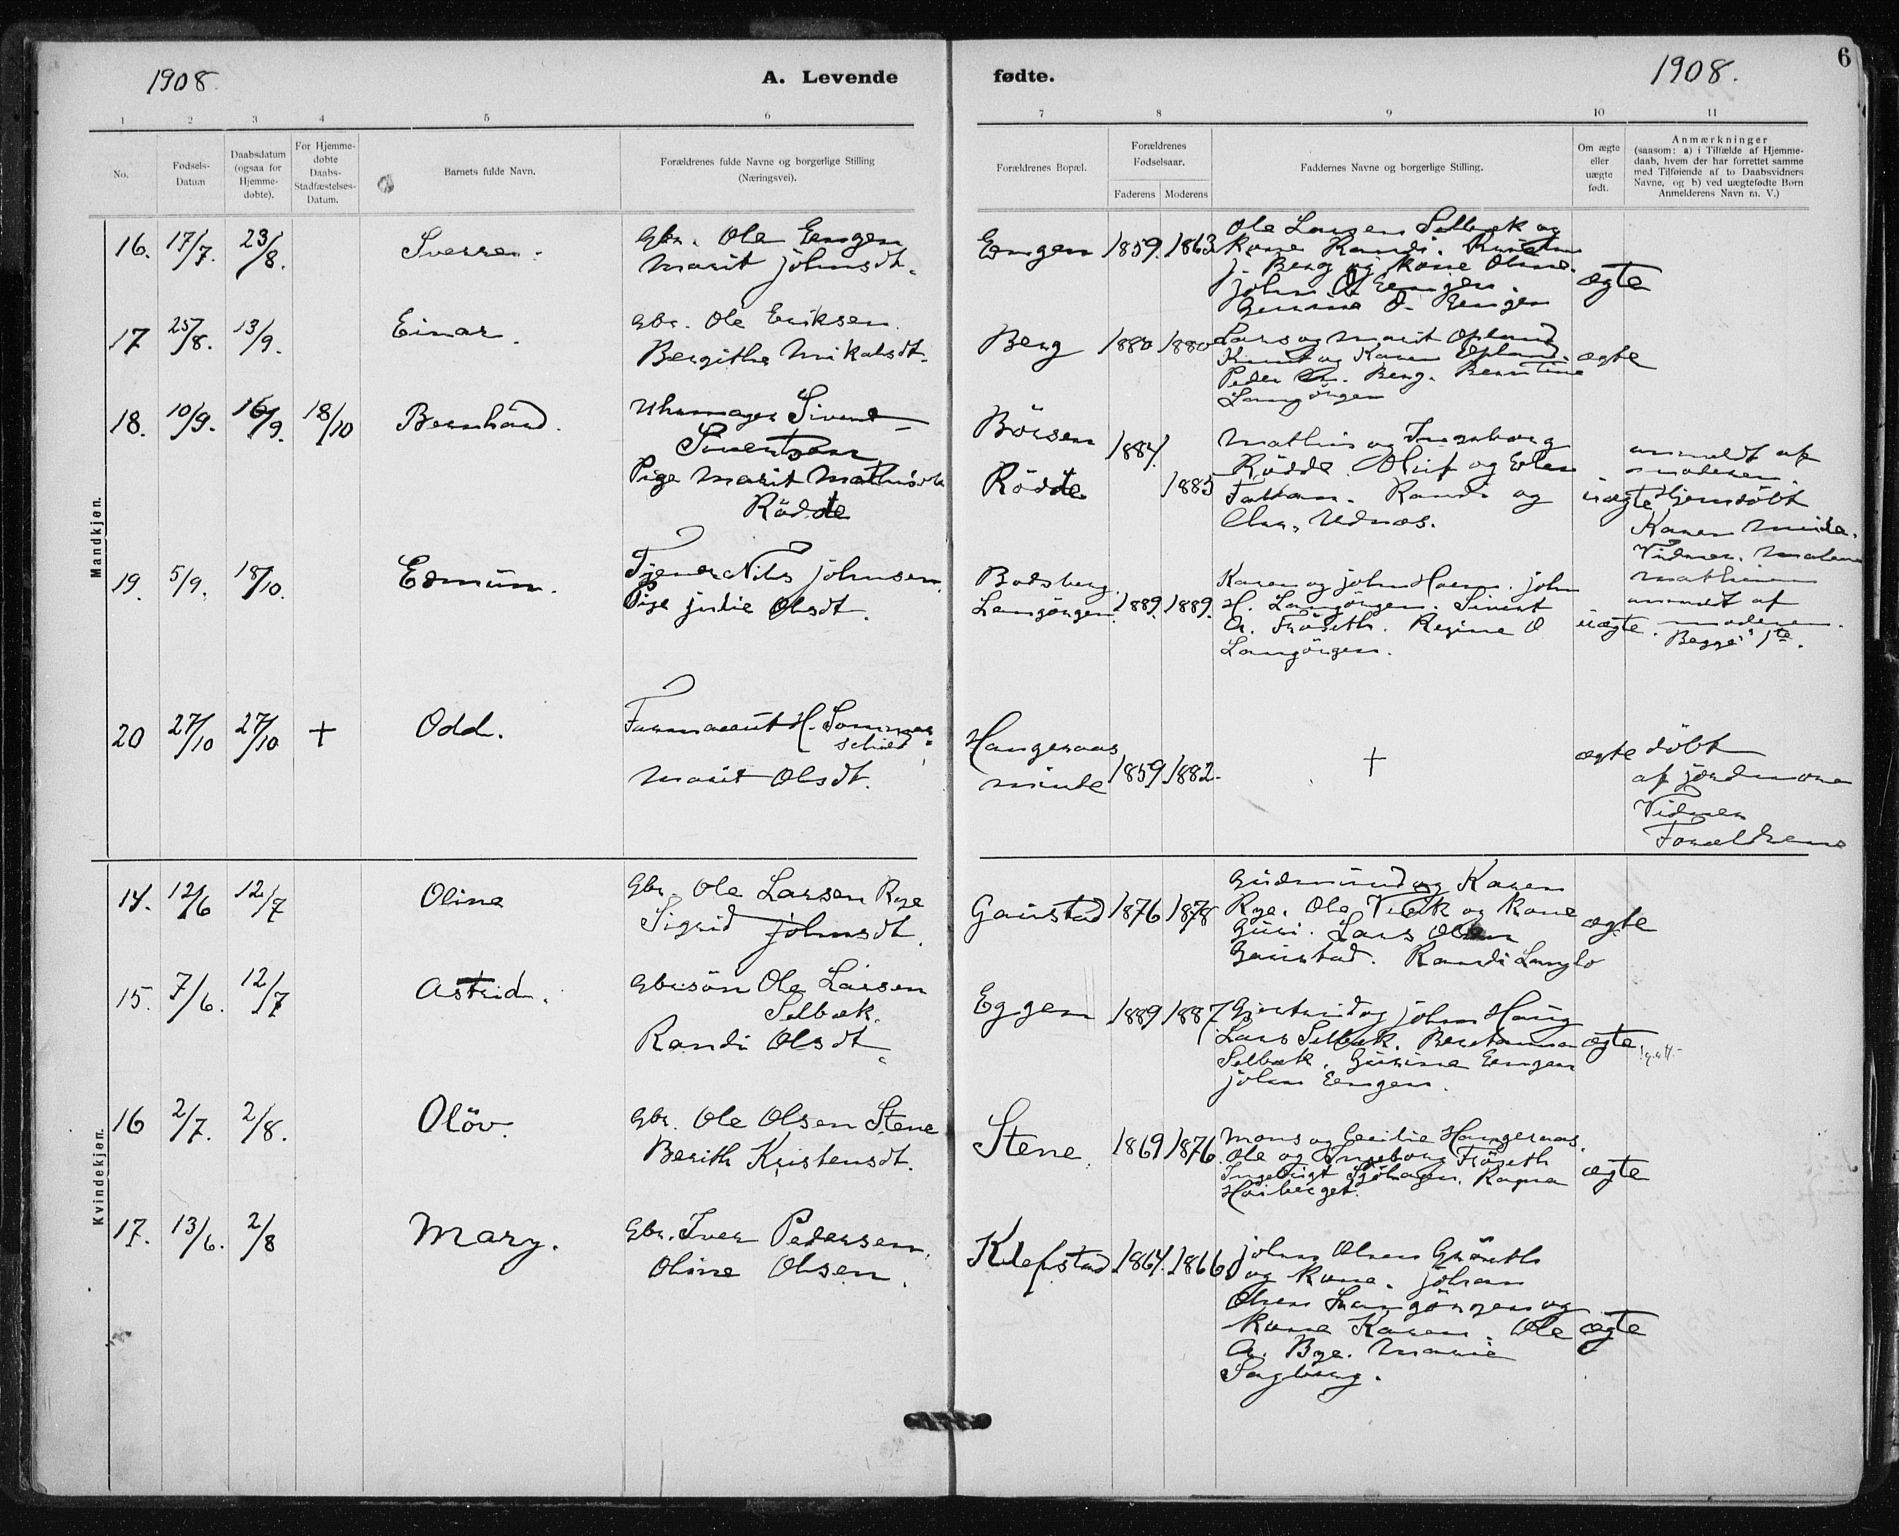 1908.
A. Levende
fødte.
1908.
6
1
2
3
4
5
6
7
8
9
10
11
No.
Fødsels-
Datum
Daabsdatum
(ogsaa for
Hjemme-
døbte).
For Hjemme-
døbte
Daabs-
Stadfæstelses-
Datum.
Barnets fulde Navn.
Forældrenes fulde Navne og borgerlige Stilling
(Næringsvei).
Forældrenes Bopæl.
Forældrenes
Fødselsaar.
Faderens
Moderens
Faddernes Navne og borgerlige Stilling.
Om ægte
eller
uægte
født.
Anmærkninger
(saasom: a) i Tilfælde af Hjemme-
daab, hvem der har forrettet samme
med Tilføiende af to Daabsvidners
Navne, og b) ved uægtefødte Børn
Anmelderens Navn m. V.)
Mandkjøn.
16. 17/7. 23/8. Sverre.
Gbr. Ole Engen
Marit Johnsdt.
Engen 1859. 1863
Ole Larsen Selbæk og
Kone Randi.
Berg og Kone Oline.
John O Engen.
Gurine O. Engen
ægte
17 25/8. 13/9. Einar.
Gbr. Ole Eriksen.
Bergithe Mikalsdt.
Berg 1880 1880
Lars og Marit Opland
Knut og Karen Opland.
Peder Berg. Berntine
Langörgen
ægte
18. 10/9. 16/9. 18/10 Bernhard.
Uhrmager Sivert
Sivertsen
Pige Marit Mathisdt
Rödde
Börsen 1884.
Rödde 1885
Mathis og Ingeborg
Rödde Oluf og Ellen
Randi og
Chr. Udnæs.
uægte
anmeldt af
moderen.
Hjemdöbt
Karen Minde.
Vidner. Malene
Mathisen
19. 5/9. 18/10. Edmun.
Tjener Nils Johnsen.
Pige Julie Olsdt.
Bodsberg
Langörgen. 1889. 1889.
Karen og John Horn. John
H. Langörgen. Sivert
A. Fröseth. Regine O
Langörgen.
uægte.
anmeldt af
moderen.
Begges 1te.
20 27/10 27/10 + Odd.
Farmaceut H. Sommer
schield.
Marit Olsdt.
Haugeraas
minde 1859. 1882.
+
ægte
döbt
af jordmoren
Vidner
Forældrene
Kvindekjøn.
14. 12/6 12/7 Oline
Gbr. Ole Larsen Rye
Sigrid Johnsdt.
Gaustad 1876 1878
Gudmund og Karen
Rye. Ole Viak og Kone
Guri. Lars Olsen
Gaustad. Randi Langlo
ægte
15. 7/6. 12/7 Astrid.
Gbrsön Ole Larsen
Selbæk.
Randi Olsdt.
Eggen 1889 1887
Gjertrud og John Haug
Lars Selbæk. Beretanna
Selbæk. Gurine Engen
John Engen.
ægte
16 2/7. 2/8. Olöv.
Gbr. Ole Olsen Stene
Berith Kristensdt.
Stene. 1869 1876
Mons og Cecilie Haugeraas.
Ole og Ingeborg Fröseth
Ingebrigt Sjöhagen. Ragna
ægte
17. 13/6. 2/8 Mary.
Gbr. Iver Pedersen.
Oline Olsen.
Klefstad 1864. 1866
John Olsen Gröseth
og Kone. Johan
Olsen Langörgen og
Kone Karen. Ole
A. Bye. Marie
Sagberg.
ægte